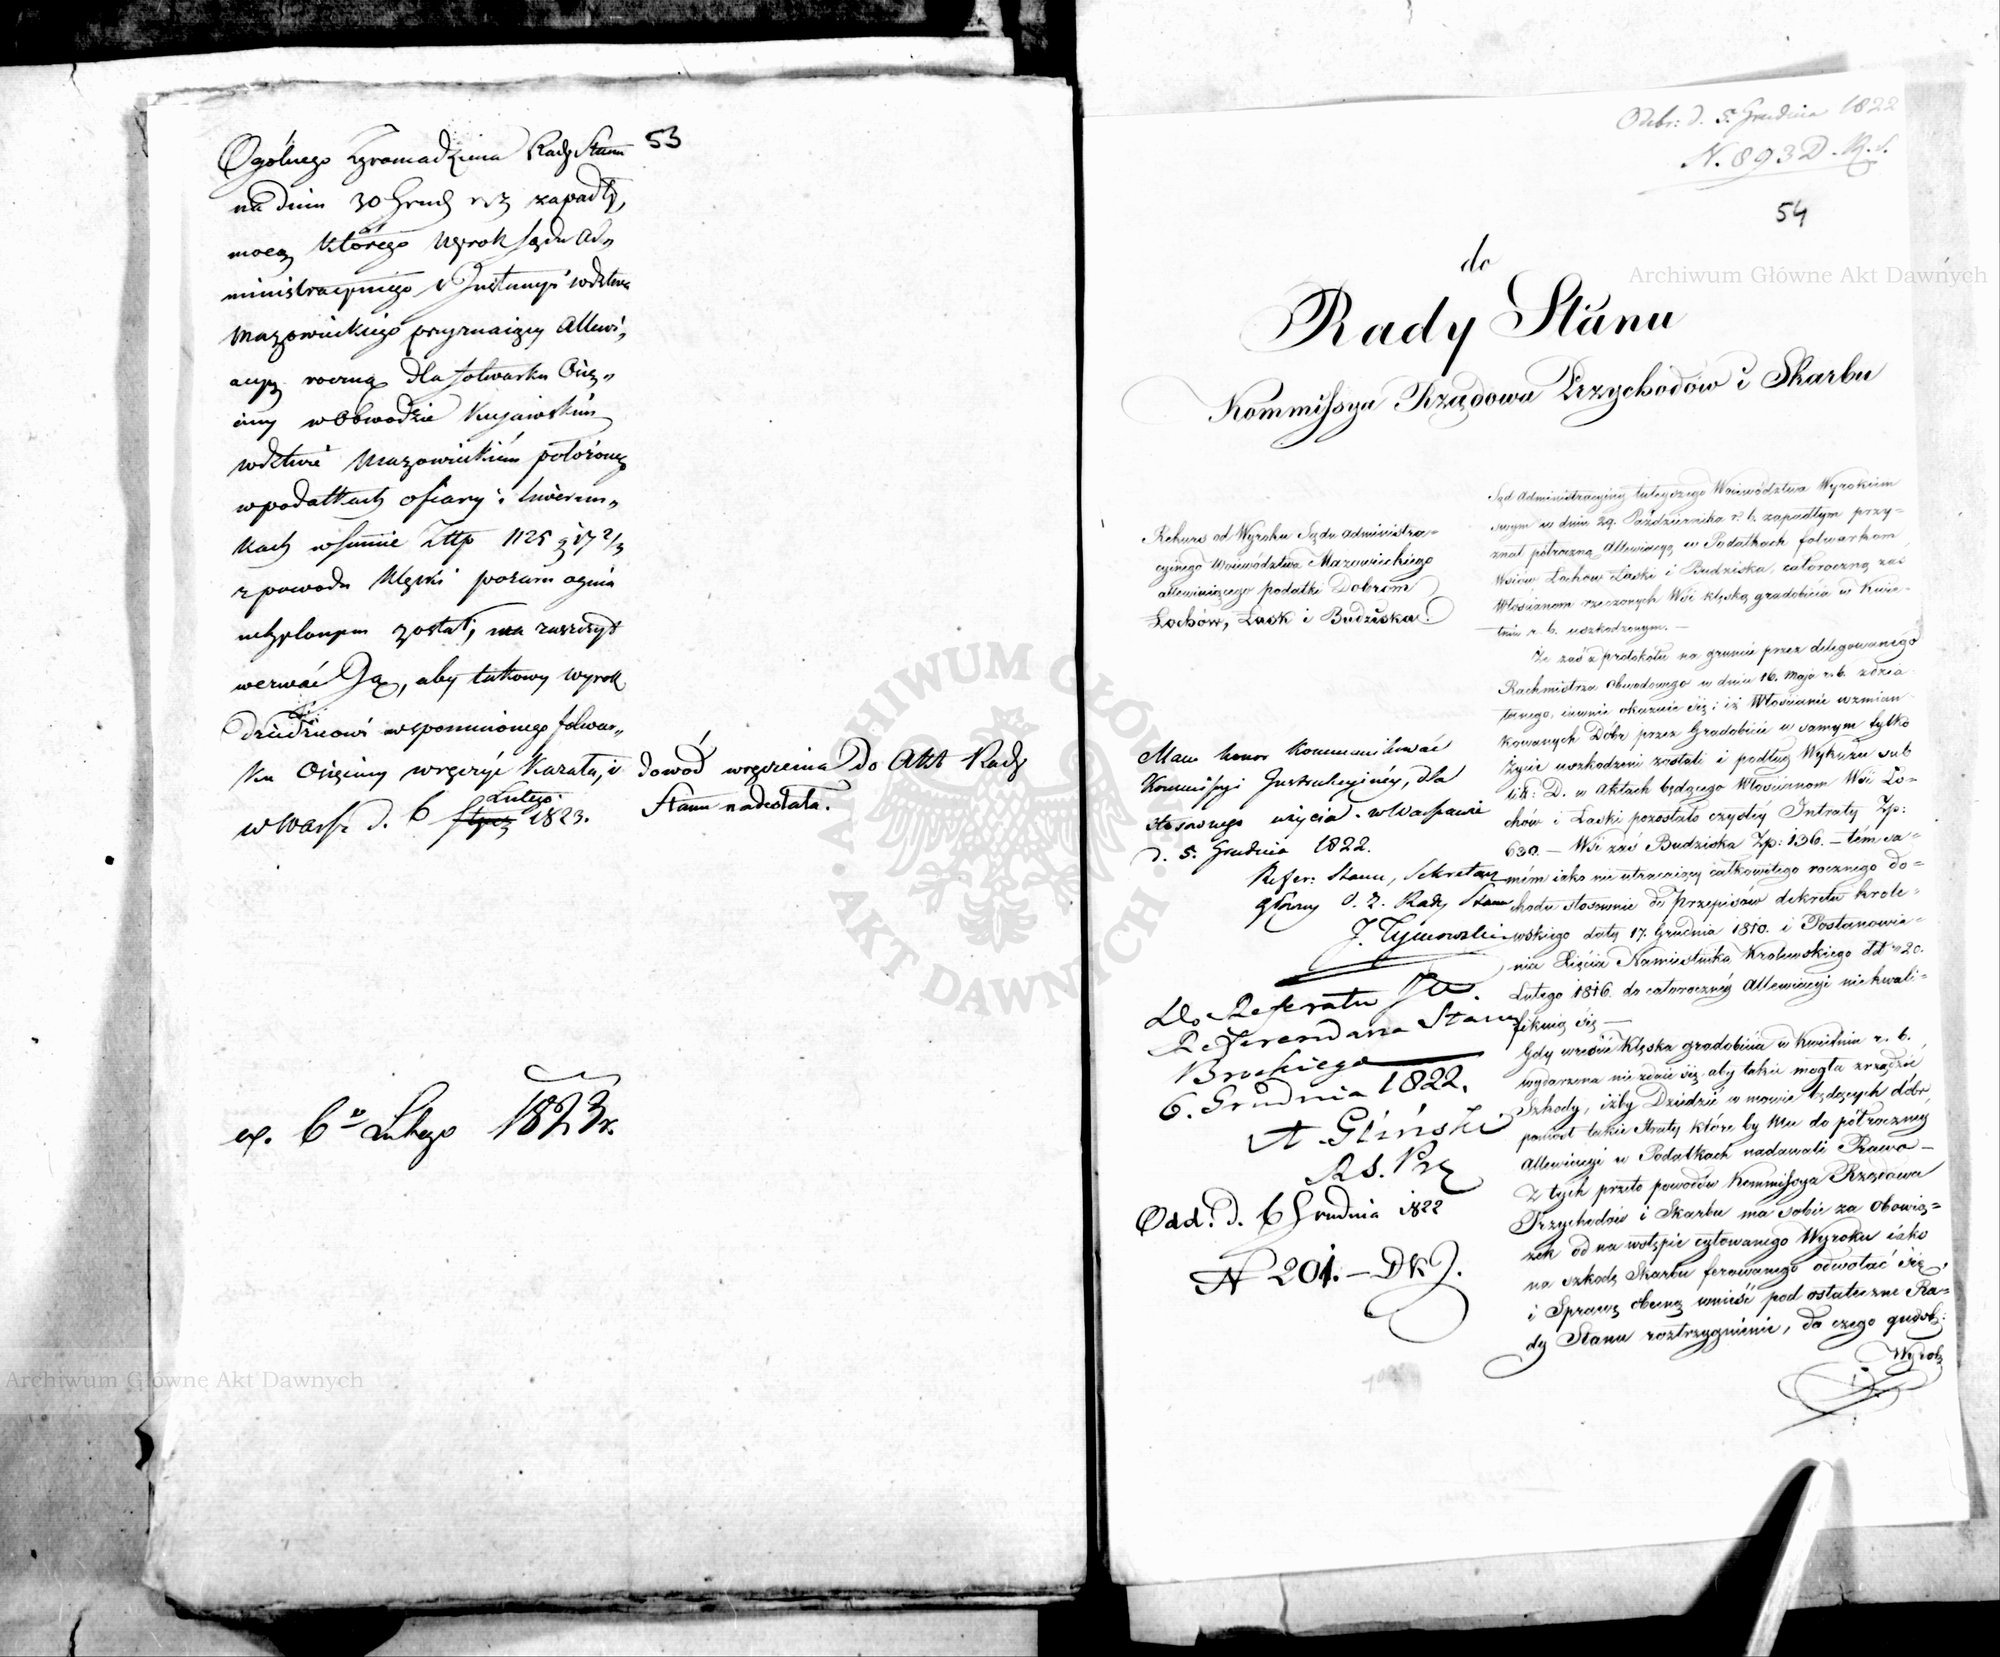 53
Ogólnego Zgromadzenia Rady Stanu
na dniu 30 Grud r. z. zapadły,
mocą którego Wyrok Sądu Ad„
ministracyinego Wdztwa
Mazowieckiego przyznaiący Allewi„
acyą roczną dla folwarku
w Obwodzie Kujawskim
Wdztwie Mazowieckim położonego
w podatkach ofiary i liwerun„
kach w summie Złtp 1125 g 17 2/3
z powodu klęski pożaru ognia
został, ma zaszczyt
wezwać Ją, aby takowy wyrok
dziedzicowi wspomnionego folwar„
ku wręczyć kazała, i
dowód wręczenia do Akt Rady
Stanu nadesłała.
w Warsz d. 6 Lutego 1823.
ex. 6 Lutego 1823 r.
Odebr: d. 5. Grudnia 1822
N. 893 D. R. S.
54
do
Rady Stanu
Kommissya Rządowa Przychodów i Skarbu
Rekurs od Wyroku Sądu Administra-
cyjnego Województwa Mazowieckiego
allewiuiącego podatki Dobrom
Łochów, Lask i Budziska.
Mam honor kommunikować
Kommissyi Instrukcyinéy, dla
stosownego użycia. w Warszawie
d. 5. Grudnia 1822.
Refer: Stanu, Sekretarz
Główny O. Z. Rady Stanu
J. Tymowski
Do Referatu JW.
Referendarza Stanu
Brockiego
6. Grudnia 1822.
A. Gliński
R. S. Prz
Odd. d. 6 Grudnia 1822
N 201. – D K J.
Sąd Administracyiny tuteyszego Województwa Wyrokiem
swym w dniu 29. Października r. b. zapadłym przy-
znał półroczną Allewiacyą w Podatkach folwarkom
Wsiów Łochow Laski i Budziska, całoroczną zaś
Włościanom rzeczonych Wsi klęską gradobicia w Kwie-
tniu r. b. uszkodzonym. —
Że zaś z protokółu na gruncie przez delegowanego
Rachmistrza Obwodowego w dniu 16. Maja r. b. zdzia-
łanego, iawnie okazuie się i iż Włościanie wzmian-
kowanych Dóbr przez Gradobicie w samym tylko
życie uszkodzeni zostali i podług Wykazu sub
lit: D. w Aktach będącego Włościanom Wsi Ło-
chów i Laski pozostało czystéy Intraty Zp:
630. — Wsi zaś Budziska Zp: 136. — tém sa-
mém iako nie utracaiący całkowitego rocznego do-
chodu stosownie do Przepisów dekretu Króle-
wskiego daty 17. Grudnia 1810. i Postanowie-
nia Xięcia Namiestnika Krolewskiego dd 20.
Lutego 1816. do całorocznéy Allewiacyi niekwali-
fikuią się —
Gdy wreście Klęska gradobicia w Kwietniu r. b.
wydarzona nie zdaie się, aby takie mogła zrządzić
Szkody, iżby Dziedzic w mowie będących dóbr,
poniósł takie straty, które by Mu do półroczney
Allewiacyi w Podatkach nadawali Prawo —
Z tych przeto powodów Kommissya Rządowa
Przychodów i Skarbu ma sobie za Obowią-
zek od na wstępie cytowanego Wyroku iako
na szkodę Skarbu ferowanego odwołać się,
i Sprawę obecną wnieść pod ostateczne Ra-
dy Stanu roztrzygnienie, do czego
Wyrok
Archiwum Główne Akt Dawnych
Archiwum Główne Akt Dawnych
ARCHIWUM GŁÓWNE
AKT DAWNYCH